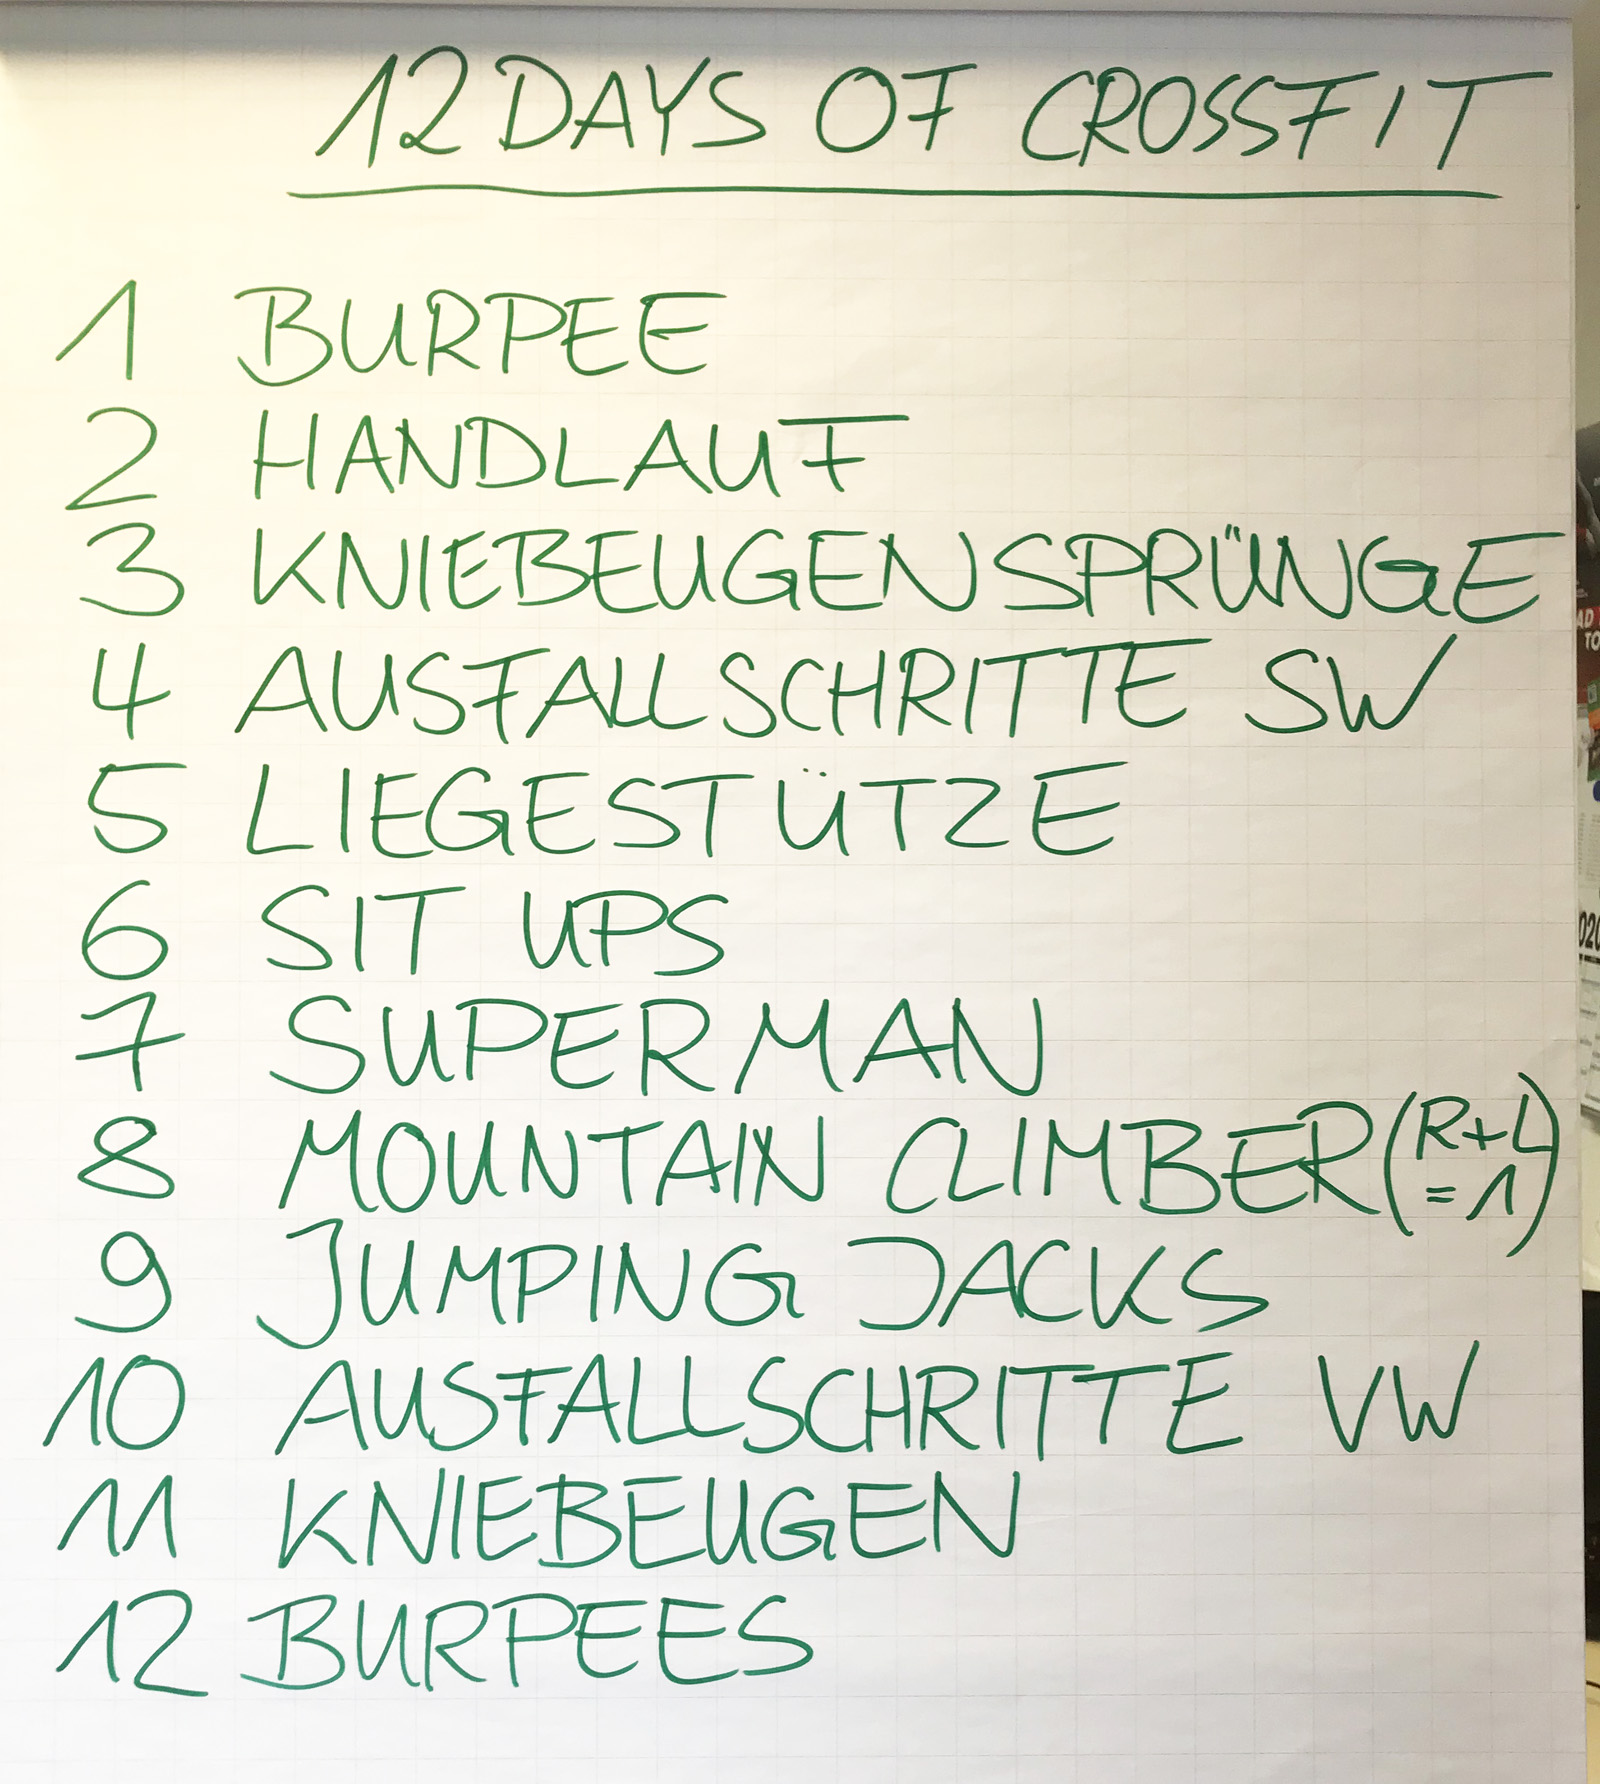 12 DAYS OF CROSSFIT
1 BURPEE
2 HANDLAUF
3 KNIEBEUGENSPRÜNGE
4 AUSFALLSCHRITTE SW
5 LIEGESTÜTZE
6 SIT UPS
7 SUPERMAN
8 MOUNTAIN CLIMBER (R+L = 1)
9 JUMPING JACKS
10 AUSFALLSCHRITTE VW
11 KNIEBEUGEN
12 BURPEES